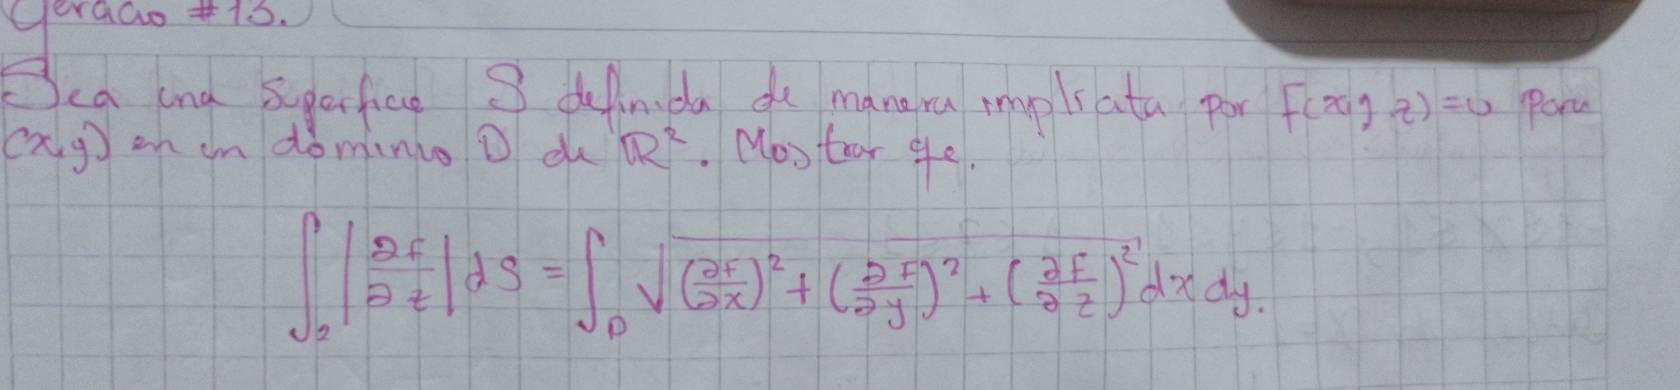 #13.
Sea una Superficie S definida de manera implicita por F(x,y,z)=0 para
(x,y) en un dominio D de ℝ². Mostrar qe.
∫₂ |∂f/∂z| dS = ∫_D √((∂F/∂x)² + (∂F/∂y)² + (∂F/∂z)²) dx dy.